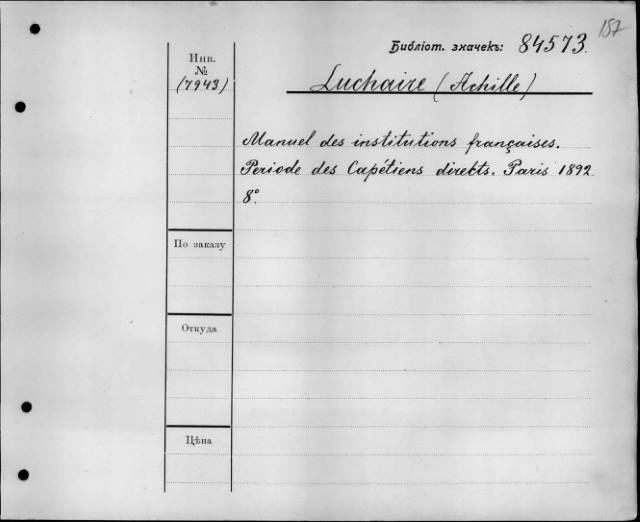 157
Библіот. значекъ: 84573.
Инв.
№
(7943)
Luchaire (Achille)
Manuel des institutions françaises.
Periode des Capétiens directs. Paris 1892
8°.
По заказу
Откуда
Цѣна